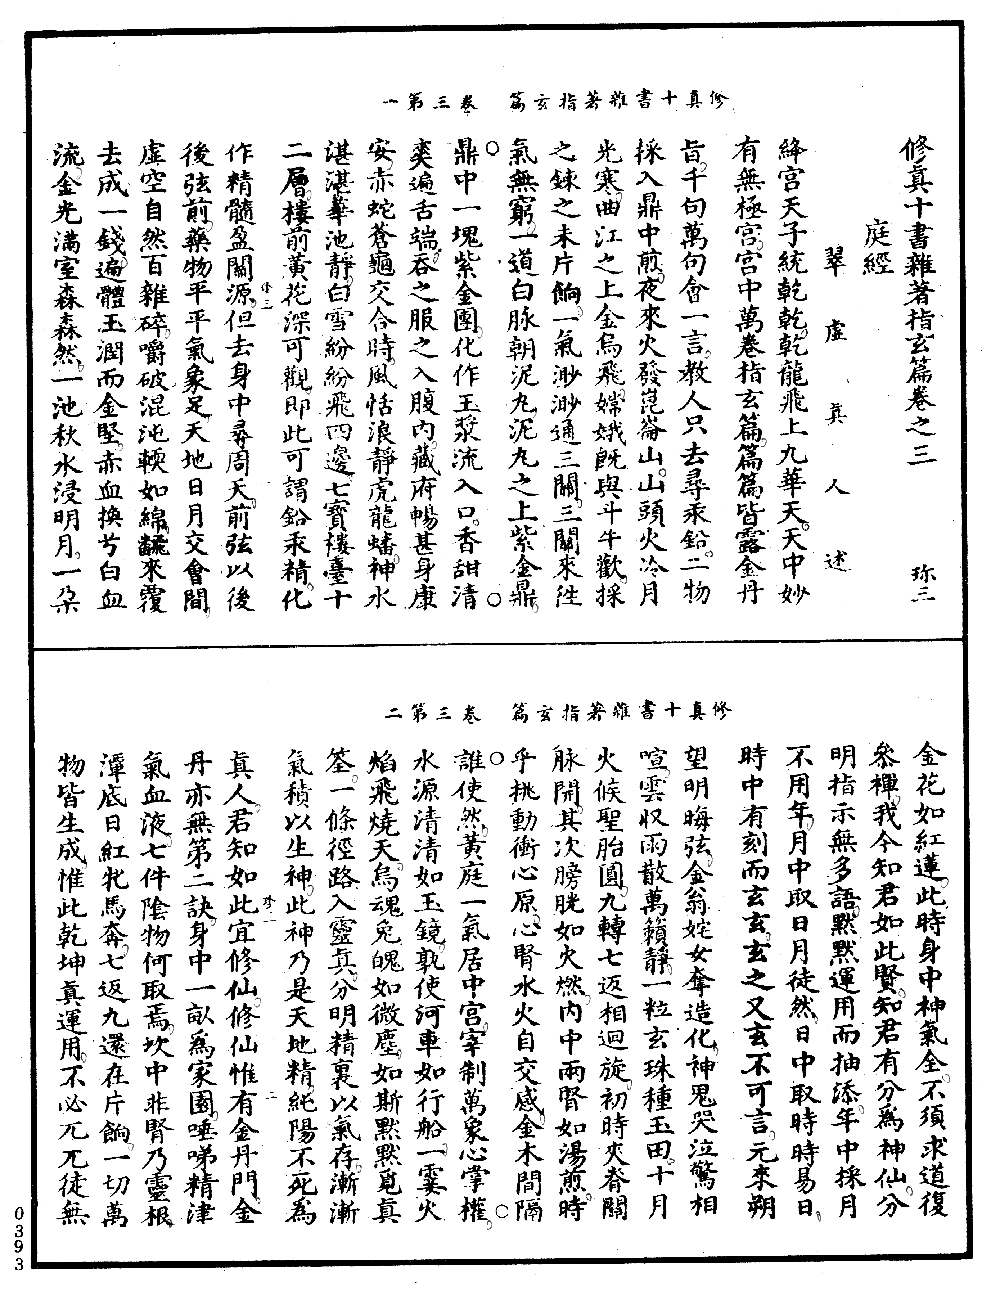 修真十書雜著指玄篇　卷三第一
修真十書雜著指玄篇卷之三　珎三
庭經
翠虛真人述
絳宮天子統乾乾乾龍飛上九華天天中妙
有無極宮宮中萬卷指玄篇篇篇皆露金丹
旨千句萬句會一言教人只去尋汞鉛二物
採入鼎中煎夜來火發崑崙山山頭火冷月
光寒曲江之上金烏飛嫦娥旣與斗牛歡採
之鍊之未片餉一氣渺渺通三關三關來往
氣無窮一道白脉朝泥丸泥丸之上紫金鼎
鼎中一塊紫金團化作玉漿流入口香甜清
爽遍舌端吞之服之入腹內藏府暢甚身康
安赤蛇蒼龜交合時風恬浪靜虎龍蟠神水
湛湛華池靜白雪紛紛飛四邊七寶樓臺十
二層樓前黃花深可觀即此可謂鉛汞精化
作精髓盈關源但去身中尋周天前弦以後
後弦前藥物平平氣象足天地日月交會間
虛空自然百雜碎嚼破混沌輭如綿虢來覆
去成一錢遍體玉潤而金堅赤血換兮白血
流金光滿室森森然一池秋水浸明月一朵
修真十書雜著指玄篇　卷三第二
金花如紅蓮此時身中神氣全不須求道復
叅禪我今知君如此賢知君有分爲神仙分
明指示無多語默默運用而抽添年中採月
不用年月中取日月徒然日中取時時易日
時中有刻而玄玄玄之又玄不可言元來朔
望明晦弦金翁姹女奪造化神鬼哭泣驚相
喧雲収雨散萬籟靜一粒玄珠種玉田十月
火候聖胎圓九轉七返相迴旋初時夾脊關
脉開其次膀胱如火燃內中兩腎如湯煎時
乎挑動衝心原心腎水火自交感金木間隔
誰使然黃庭一氣居中宮宰制萬象心掌權
水源清清如玉鏡孰使河車如行船一霎火
焰飛燒天烏魂兔魄如微塵如斯默默覓真
筌一條徑路入靈真分明精裏以氣存漸漸
氣積以生神此神乃是天地精純陽不死爲
真人君知如此宜修仙修仙惟有金丹門金
丹亦無第二訣身中一畝爲家園唾涕精津
氣血液七件陰物何取焉坎中非腎乃靈根
潭底日紅牝馬奔七返九還在片餉一切萬
物皆生成惟此乾坤真運用不必兀兀徒無
0393